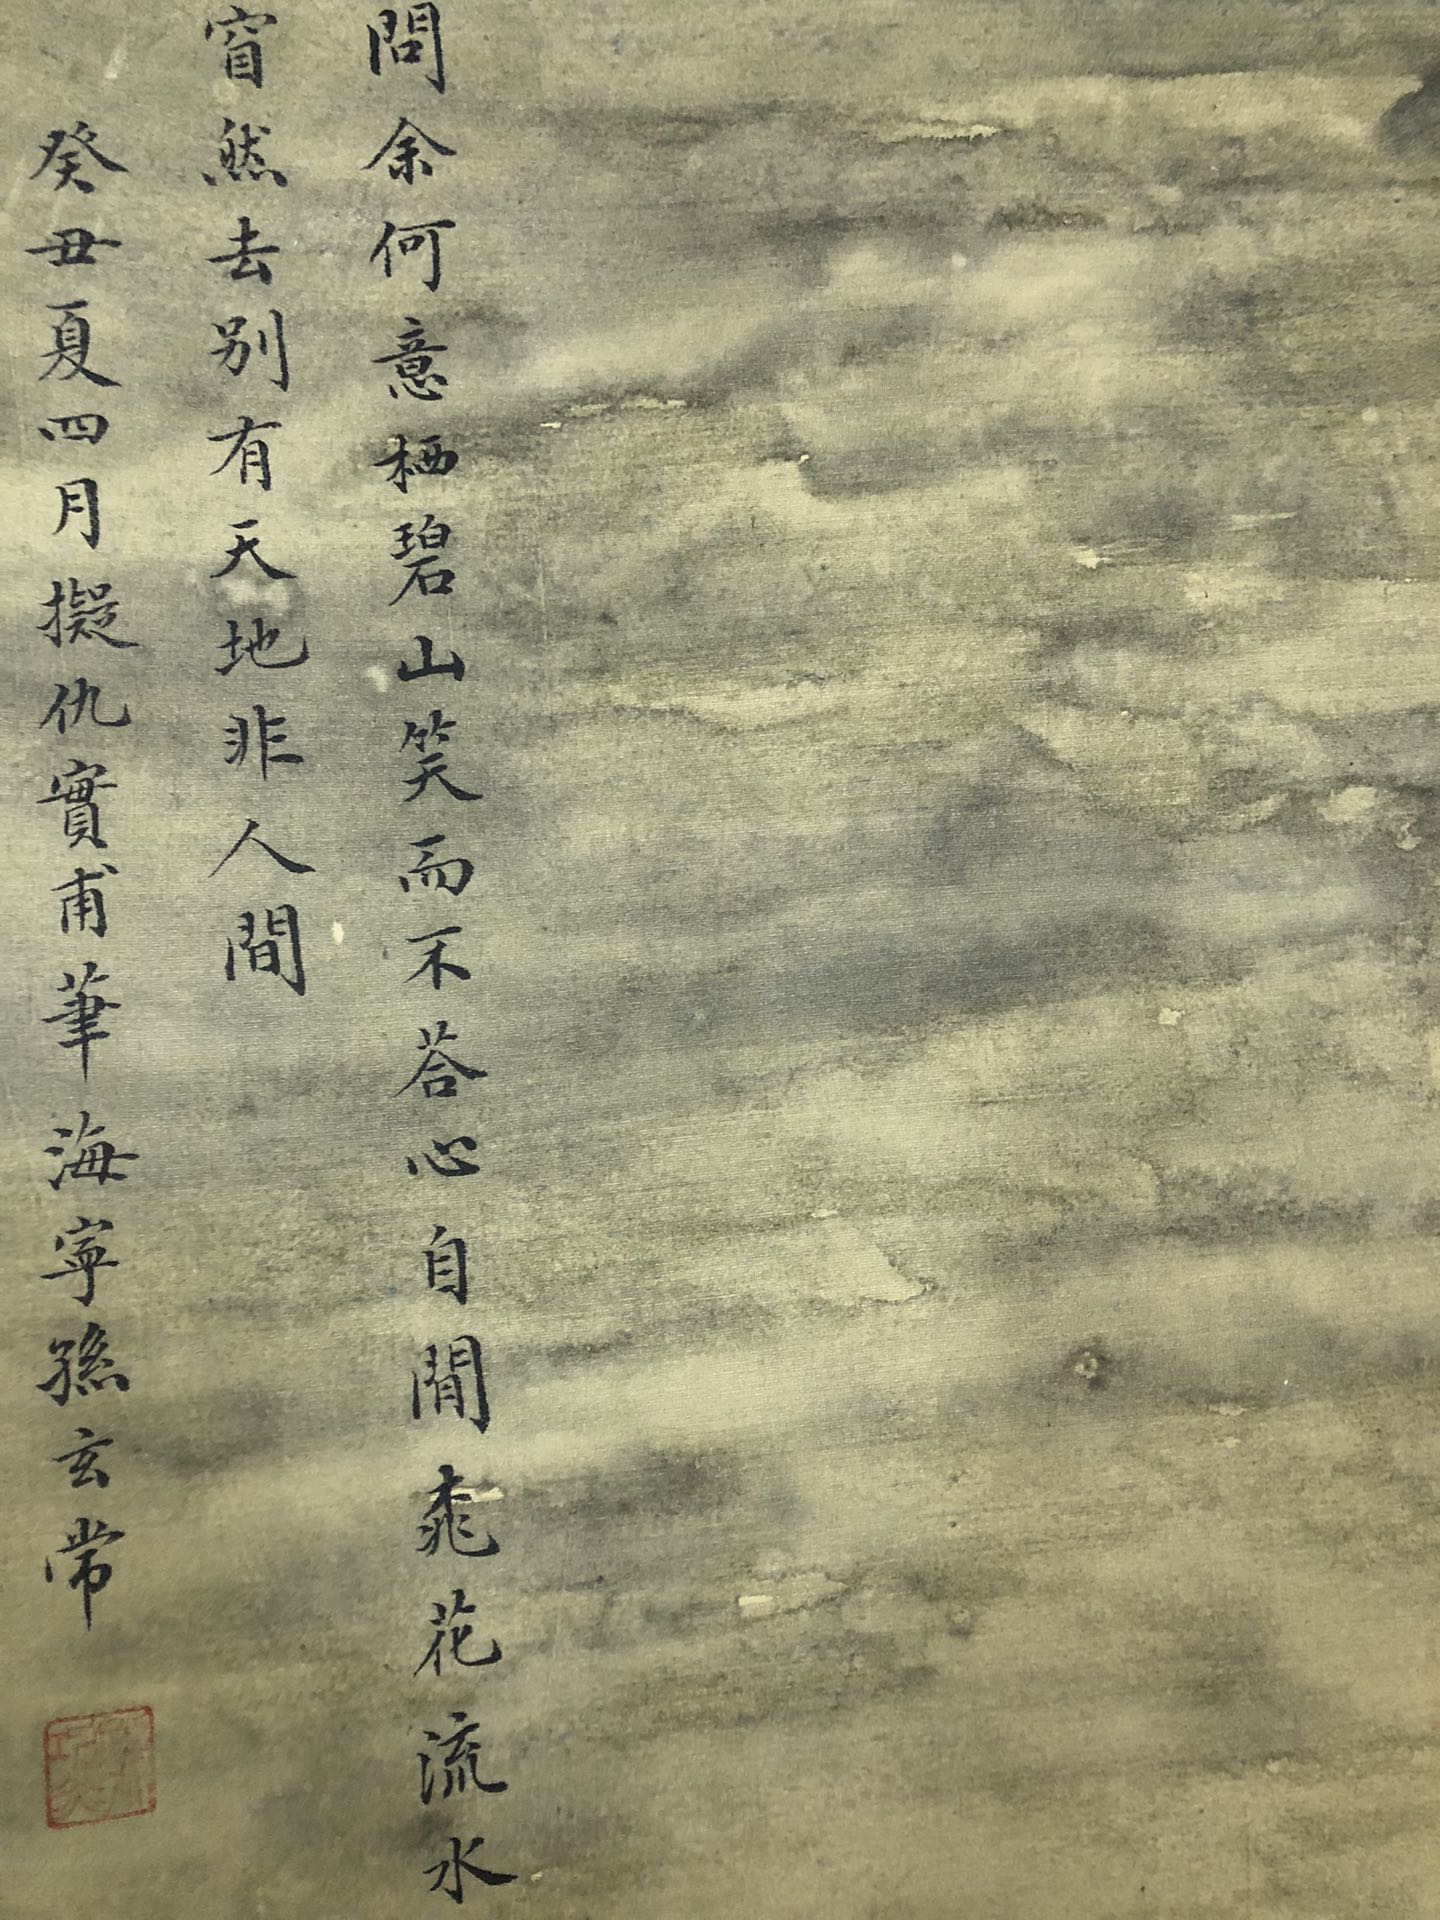 問余何意栖碧山笑而不荅心自閒桃花流水
窅然去别有天地非人間
癸丑夏四月擬仇實甫筆海寧孫玄常